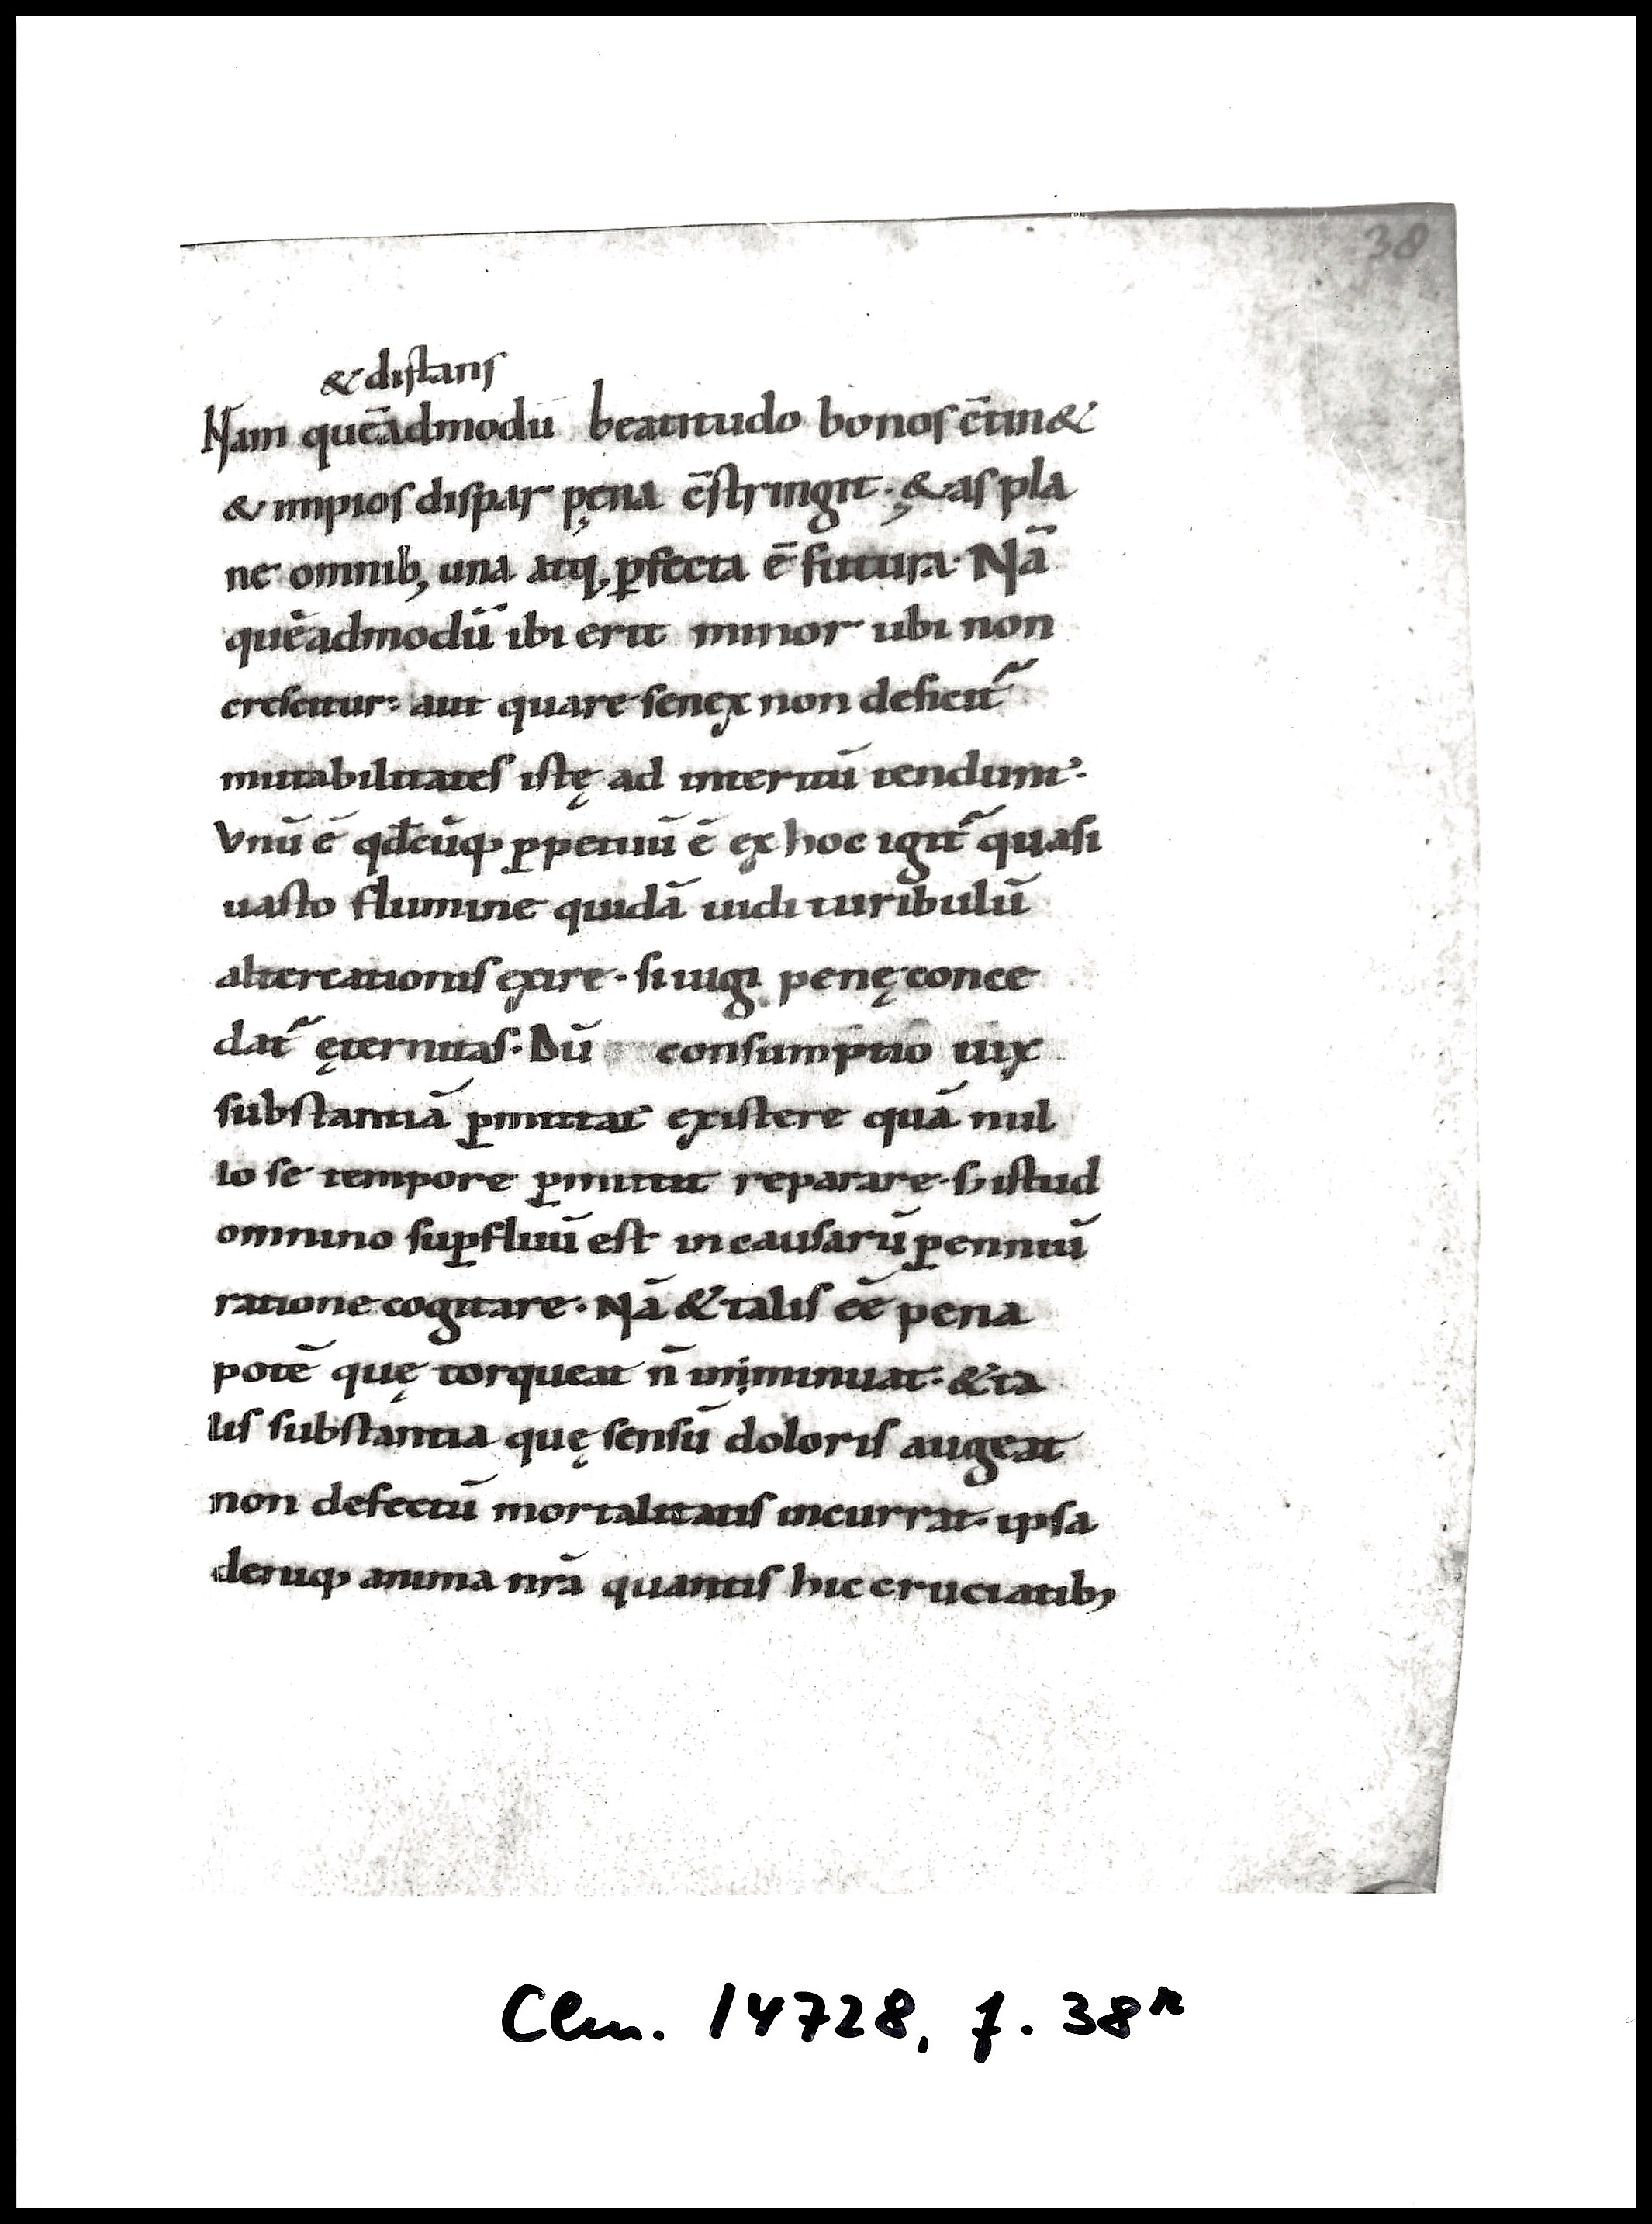 38
& distans
Nam quēadmodū beatitudo bonos c̄tin&
& impios dispar pęna c̄stringit· ę&as pla
ne omnib; una atq; p̱fecta ē futura· Nā
quēadmodū ibi erit minor ubi non
crescitur: aut quare senex non deficit᷑
mutabilitates istę ad interitū tendunt·
Vnū ē qđcūq; p̱petuū ē ex hoc igit᷑ quasi
uasto flumine quidā uidi turibulū
altercationis exire· si iugi penę conce
dat᷑ ęternitas· Dū consumptio uix
substantiā p̱mittat existere quā nul
lo se tempore p̱mittit reparare· S; istud
omnino sup̱fluū est in causarū p̱enniū
ratione cogitare· Nā & talis eē pena
potē quę torqueat n̄ imminuat: & ta
lis substantia quę sensū doloris augeat
non defectū mortalitatis incurrat· ipsa
deniq; anima nr̄a quantis hic cruciatib;
Clm. 14728, f. 38r